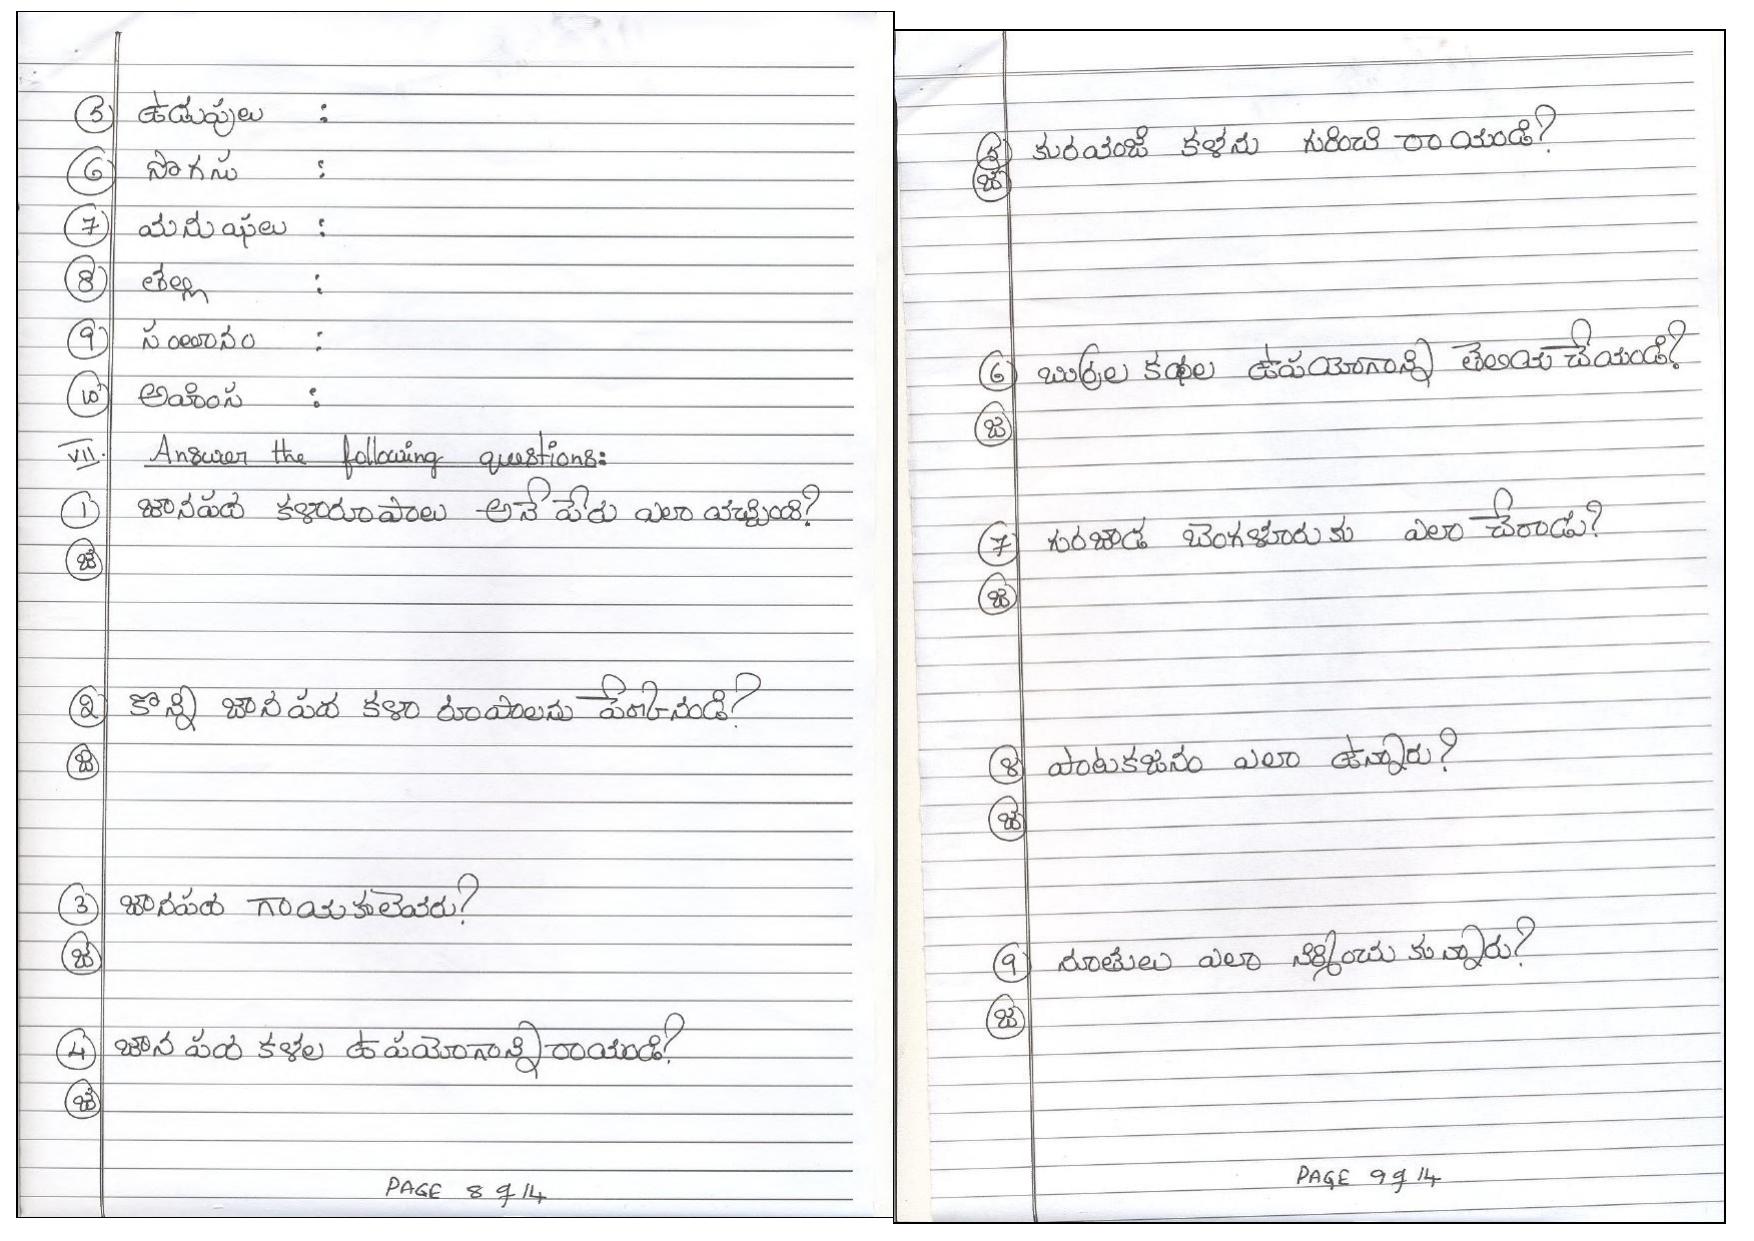 5) ఉడుపులు :
6) సొగసు :
7) మనుషులు :
8) తల్లి :
9) సంతానం :
10) అహింస :
VII. Answer the following questions:
1) జానపద కళారూపాలు అనే పేరు ఎలా వచ్చింది?
జ
2) కొన్ని జానపద కళా రూపాలను పేర్కొనండి?
జ
3) జానపద గాయకులెవరు?
జ
4) జానపద కళల ఉపయోగాన్ని రాయండి?
జ
PAGE 8 of 14
5) కురవంజి కళను గురించి రాయండి?
జ
6) బుర్రల కథల ఉపయోగాన్ని తెలియచేయండి?
జ
7) గురజాడ బెంగళూరుకు ఎలా చేరాడు?
జ
8) పాటకజనం ఎలా ఉన్నారు?
జ
9) రైతులు ఎలా నిర్ణయించు కున్నారు?
జ
PAGE 9 of 14